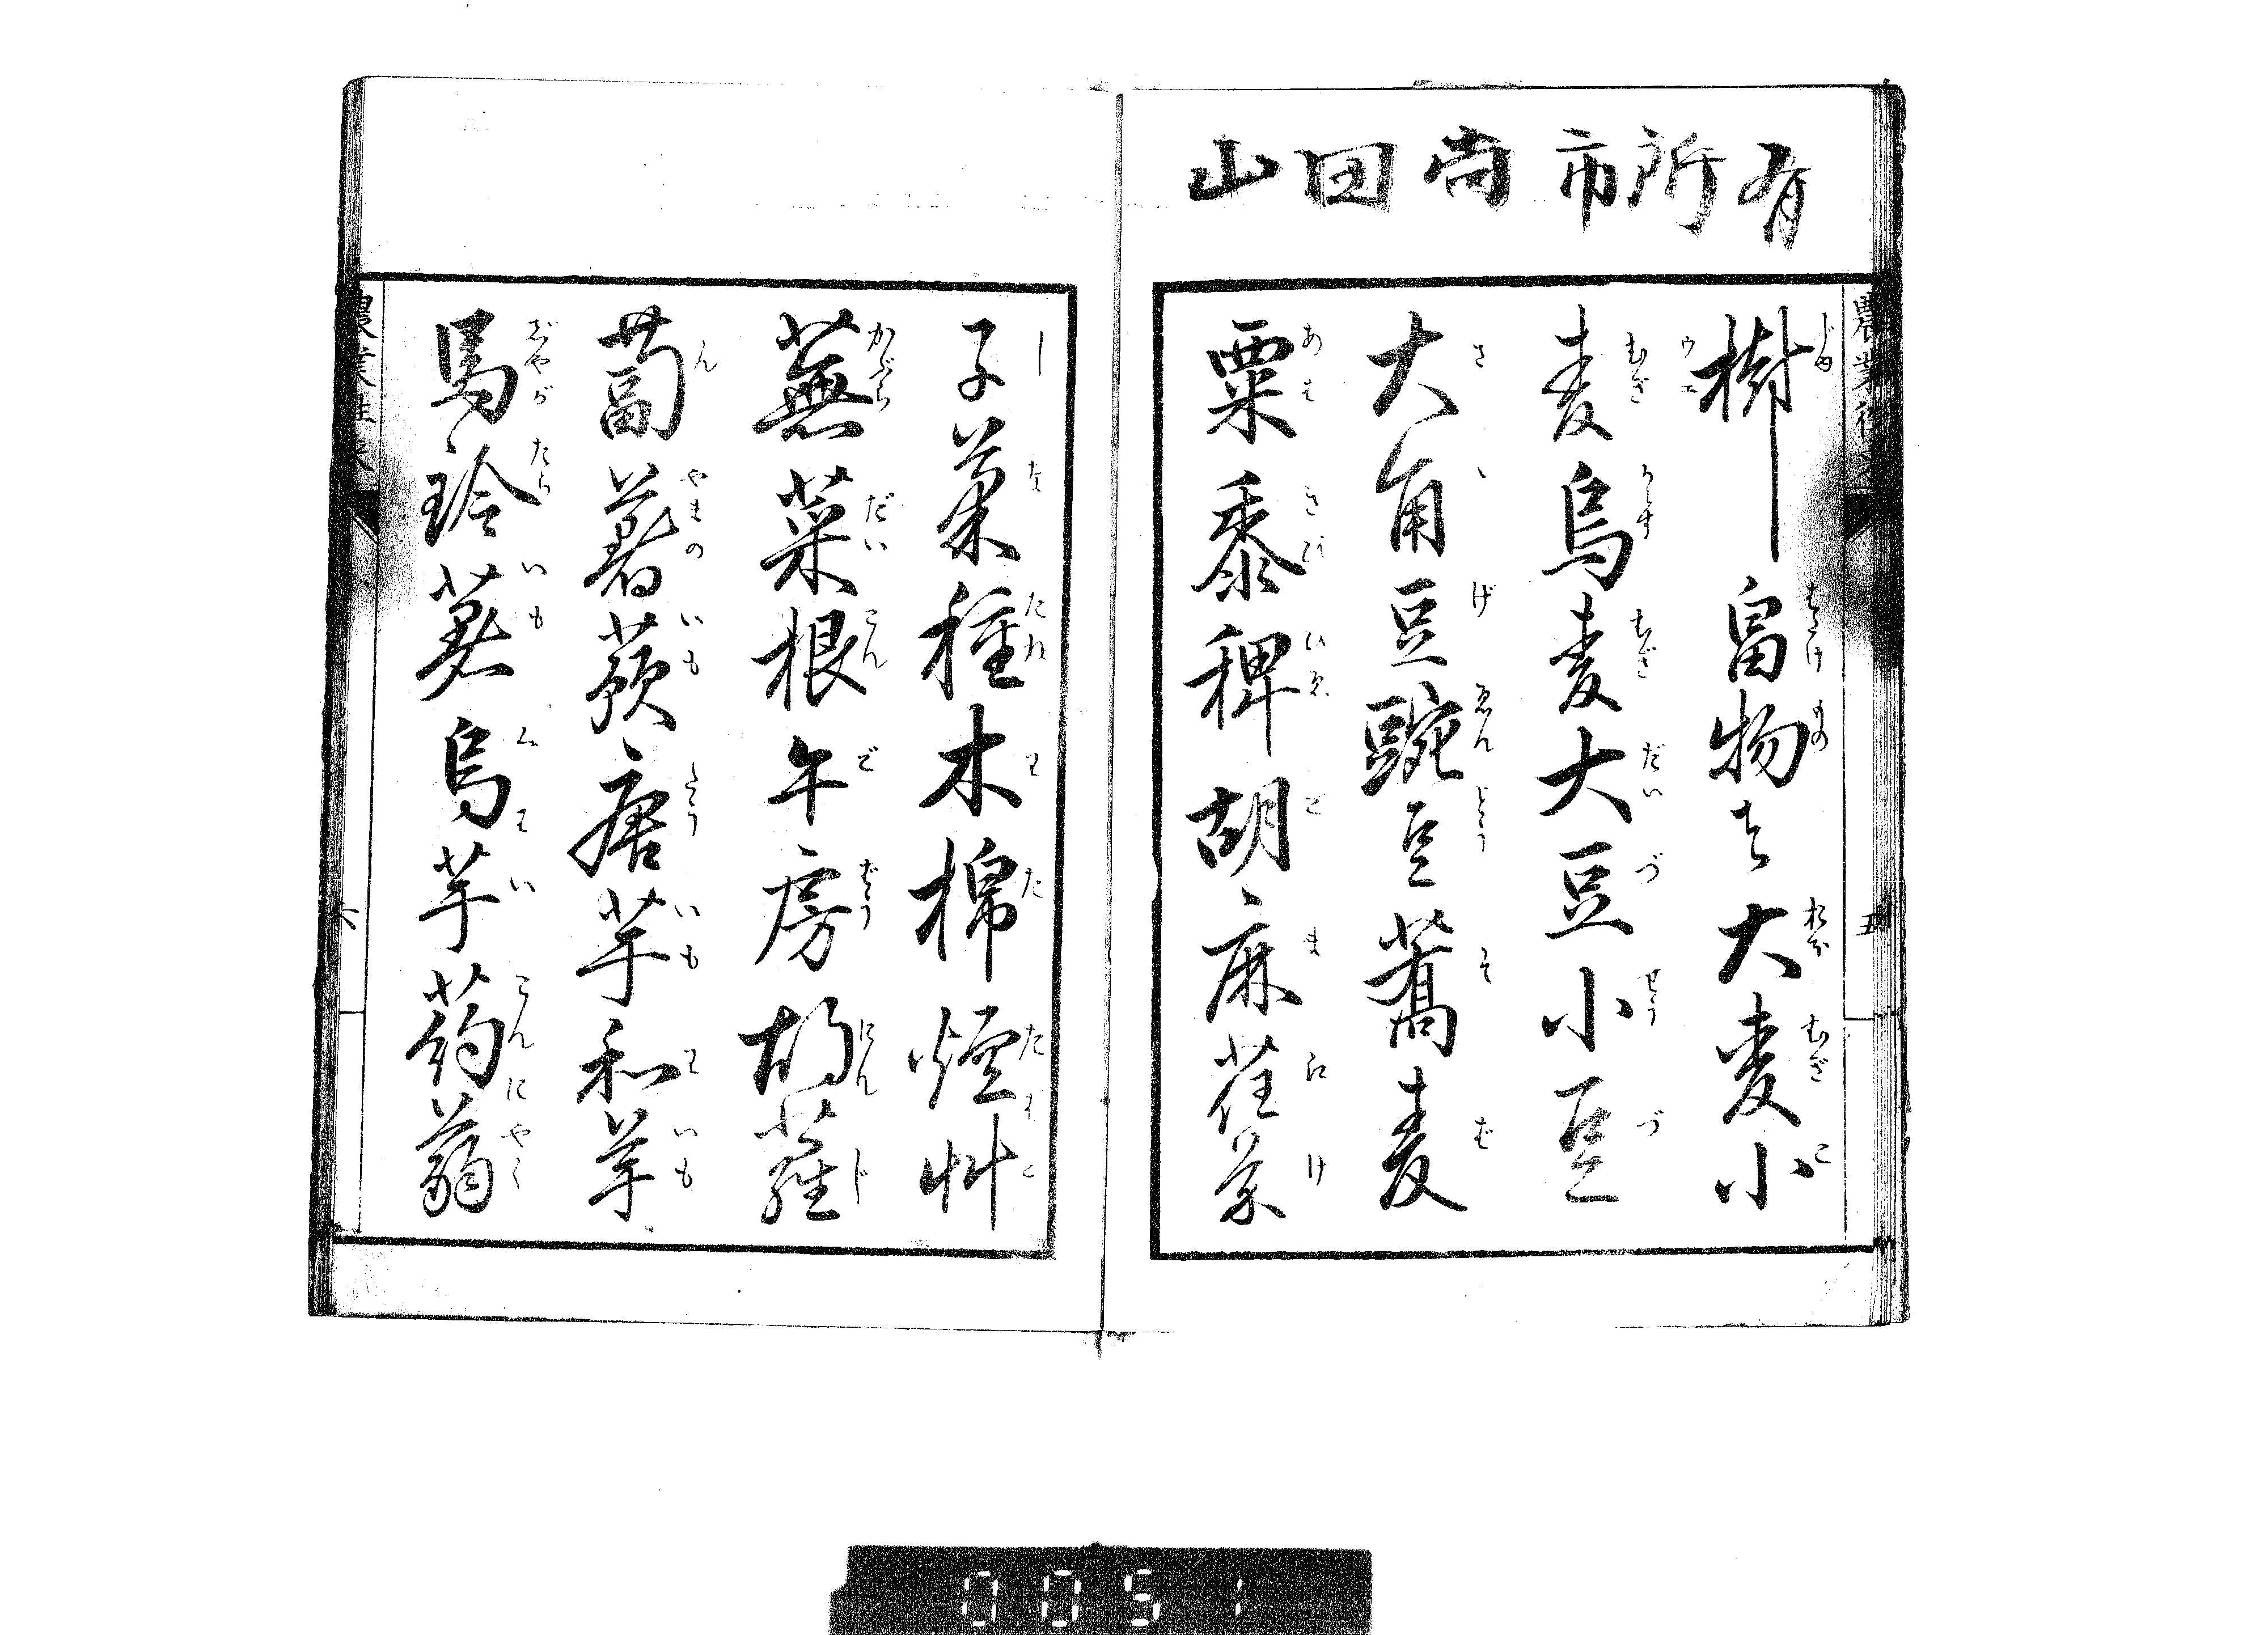 山田尚市所有
農業往来
五
樹畠物者大麦小
麦烏麦大豆小豆
大角豆豌豆蕎麦
粟黍稗胡麻荏芥
子菜種木棉煙艸
蕪菜根午房胡蘿
蔔薯蕷唐芋和芋
馬玲薯烏芋蒟蒻
農業往来
六
0051